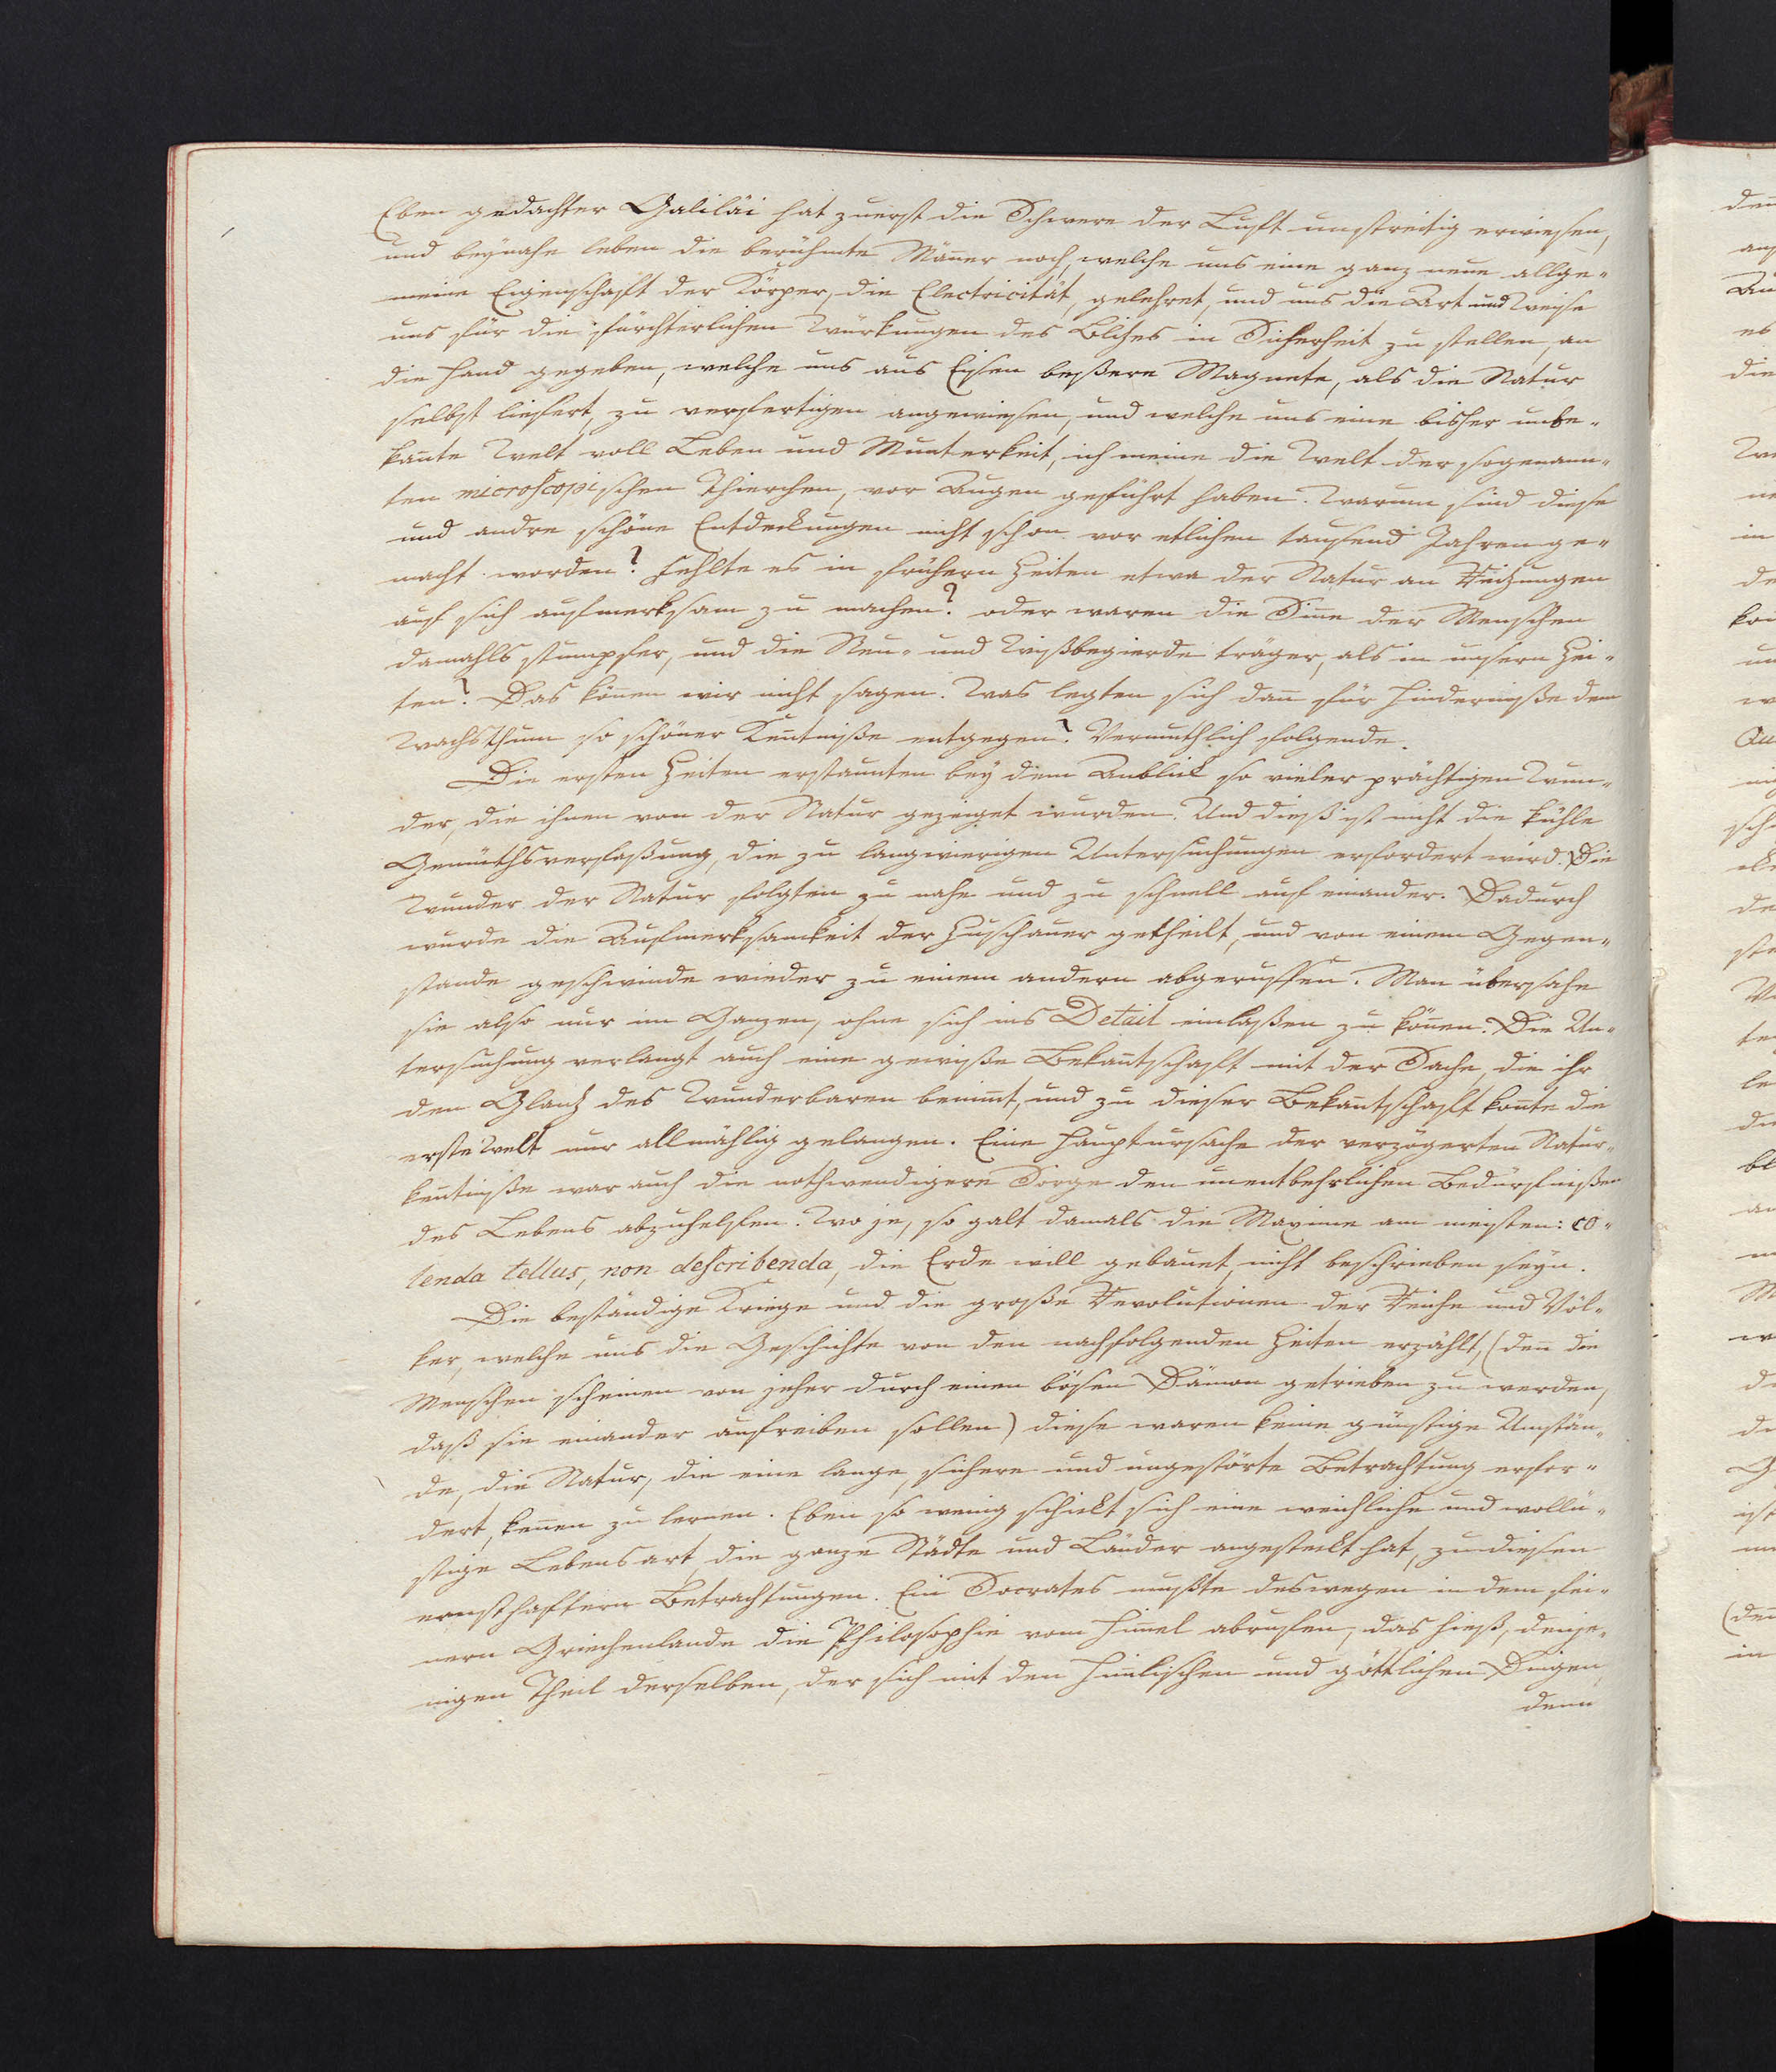 Eben gedachter Galiläi hat zuerst die Schwere der Luft unstreitig erwiesen,
und beynahe leben die berühmte Mäñer noch, welche uns eine ganz neue allge-
meine Eigenschaft der Körper, die Electricität, gelehret, und uns die Art und Weise
uns für die fürchterlichen Würkungen des Blitzes in Sicherheit zu stellen, an
die Hand gegeben, welche uns aus Eisen beßere Magnete, als die Natur
selbst liefert, zu verfertigen angewiesen, und welche uns eine bisher unbe-
kañte Welt voll Leben und Munterkeit, ich meine die Welt der sogenann-
ten microscopischen Thierchen, vor Augen geführt haben. Warum sind diese
und andre schöne Entdeckungen nicht schon vor etlichen tausend Jahren ge-
macht worden? Fehlte es in frühern Zeiten etwa der Natur an Reizungen
auf sich aufmerksam zu machen? oder waren die Siñe der Menschen
damahls stumpfer, und die Neu- und Wißbegierde träger, als in unsern Zei-
ten? Das köñen wir nicht sagen. Was legten sich dañ für Hinderniße dem
Wachsthum so schöner Keñtniße entgegen? Vermuthlich folgende.
Die ersten Zeiten erstaunten bey dem Anblick so vieler prächtigen Wun-
der, die ihnen von der Natur gezeiget wurden. Und dieß ist nicht die kühle
Gemüthsverfaßung, die zu langwierigen Untersuchungen erfordert wird. Die
Wunder der Natur folgten zu nahe und zu schnell auf einander. Dadurch
wurde die Aufmerksamkeit der Zuschauer getheilt, und von einem Gegen-
stande geschwinde wieder zu einem andern abgeruffen. Man übersahe
sie also nur im Ganzen, ohne sich ins Detail einlaßen zu köñen. Die Un-
tersuchung verlangt auch eine gewiße Bekañtschaft mit der Sache, die ihr
den Glanz des Wunderbaren benim̃t, und zu dieser Bekañtschaft koñte die
erste Welt nur allmählig gelangen. Eine Hauptursache der verzögerten Natur-
keñtniße war auch die nothwendigere Sorge den unentbehrlichen Bedürfnißen
des Lebens abzuhelfen. Wo je, so galt damals die Maxime am meisten: co-
lenda tellus, non describenda, die Erde will gebauet nicht beschrieben seyn.
Die beständige Kriege und die große Revolutionen der Reiche und Völ-
ker, welche uns die Geschichte von den nachfolgenden Zeiten erzählt, (deñ die
Menschen scheinen von jeher durch einen bösen Dämon getrieben zu werden,
daß sie einander aufreiben sollen) diese waren keine günstige Umstän-
de, die Natur, die eine lange, sichere und ungestörte Betrachtung erfor-
dert, keñen zu lernen. Eben so wenig schickt sich eine weichliche und wollü-
stige Lebensart, die ganze Städte und Länder angesteckt hat, zu diesen
ernsthaftern Betrachtungen. Ein Socrates mußte deswegen in dem fei-
nern Griechenlande die Philosophie vom Him̃el abrufen, das hieß, denje-
nigen Theil derselben, der sich mit den him̃lischen und göttlichen Dingen,
denn